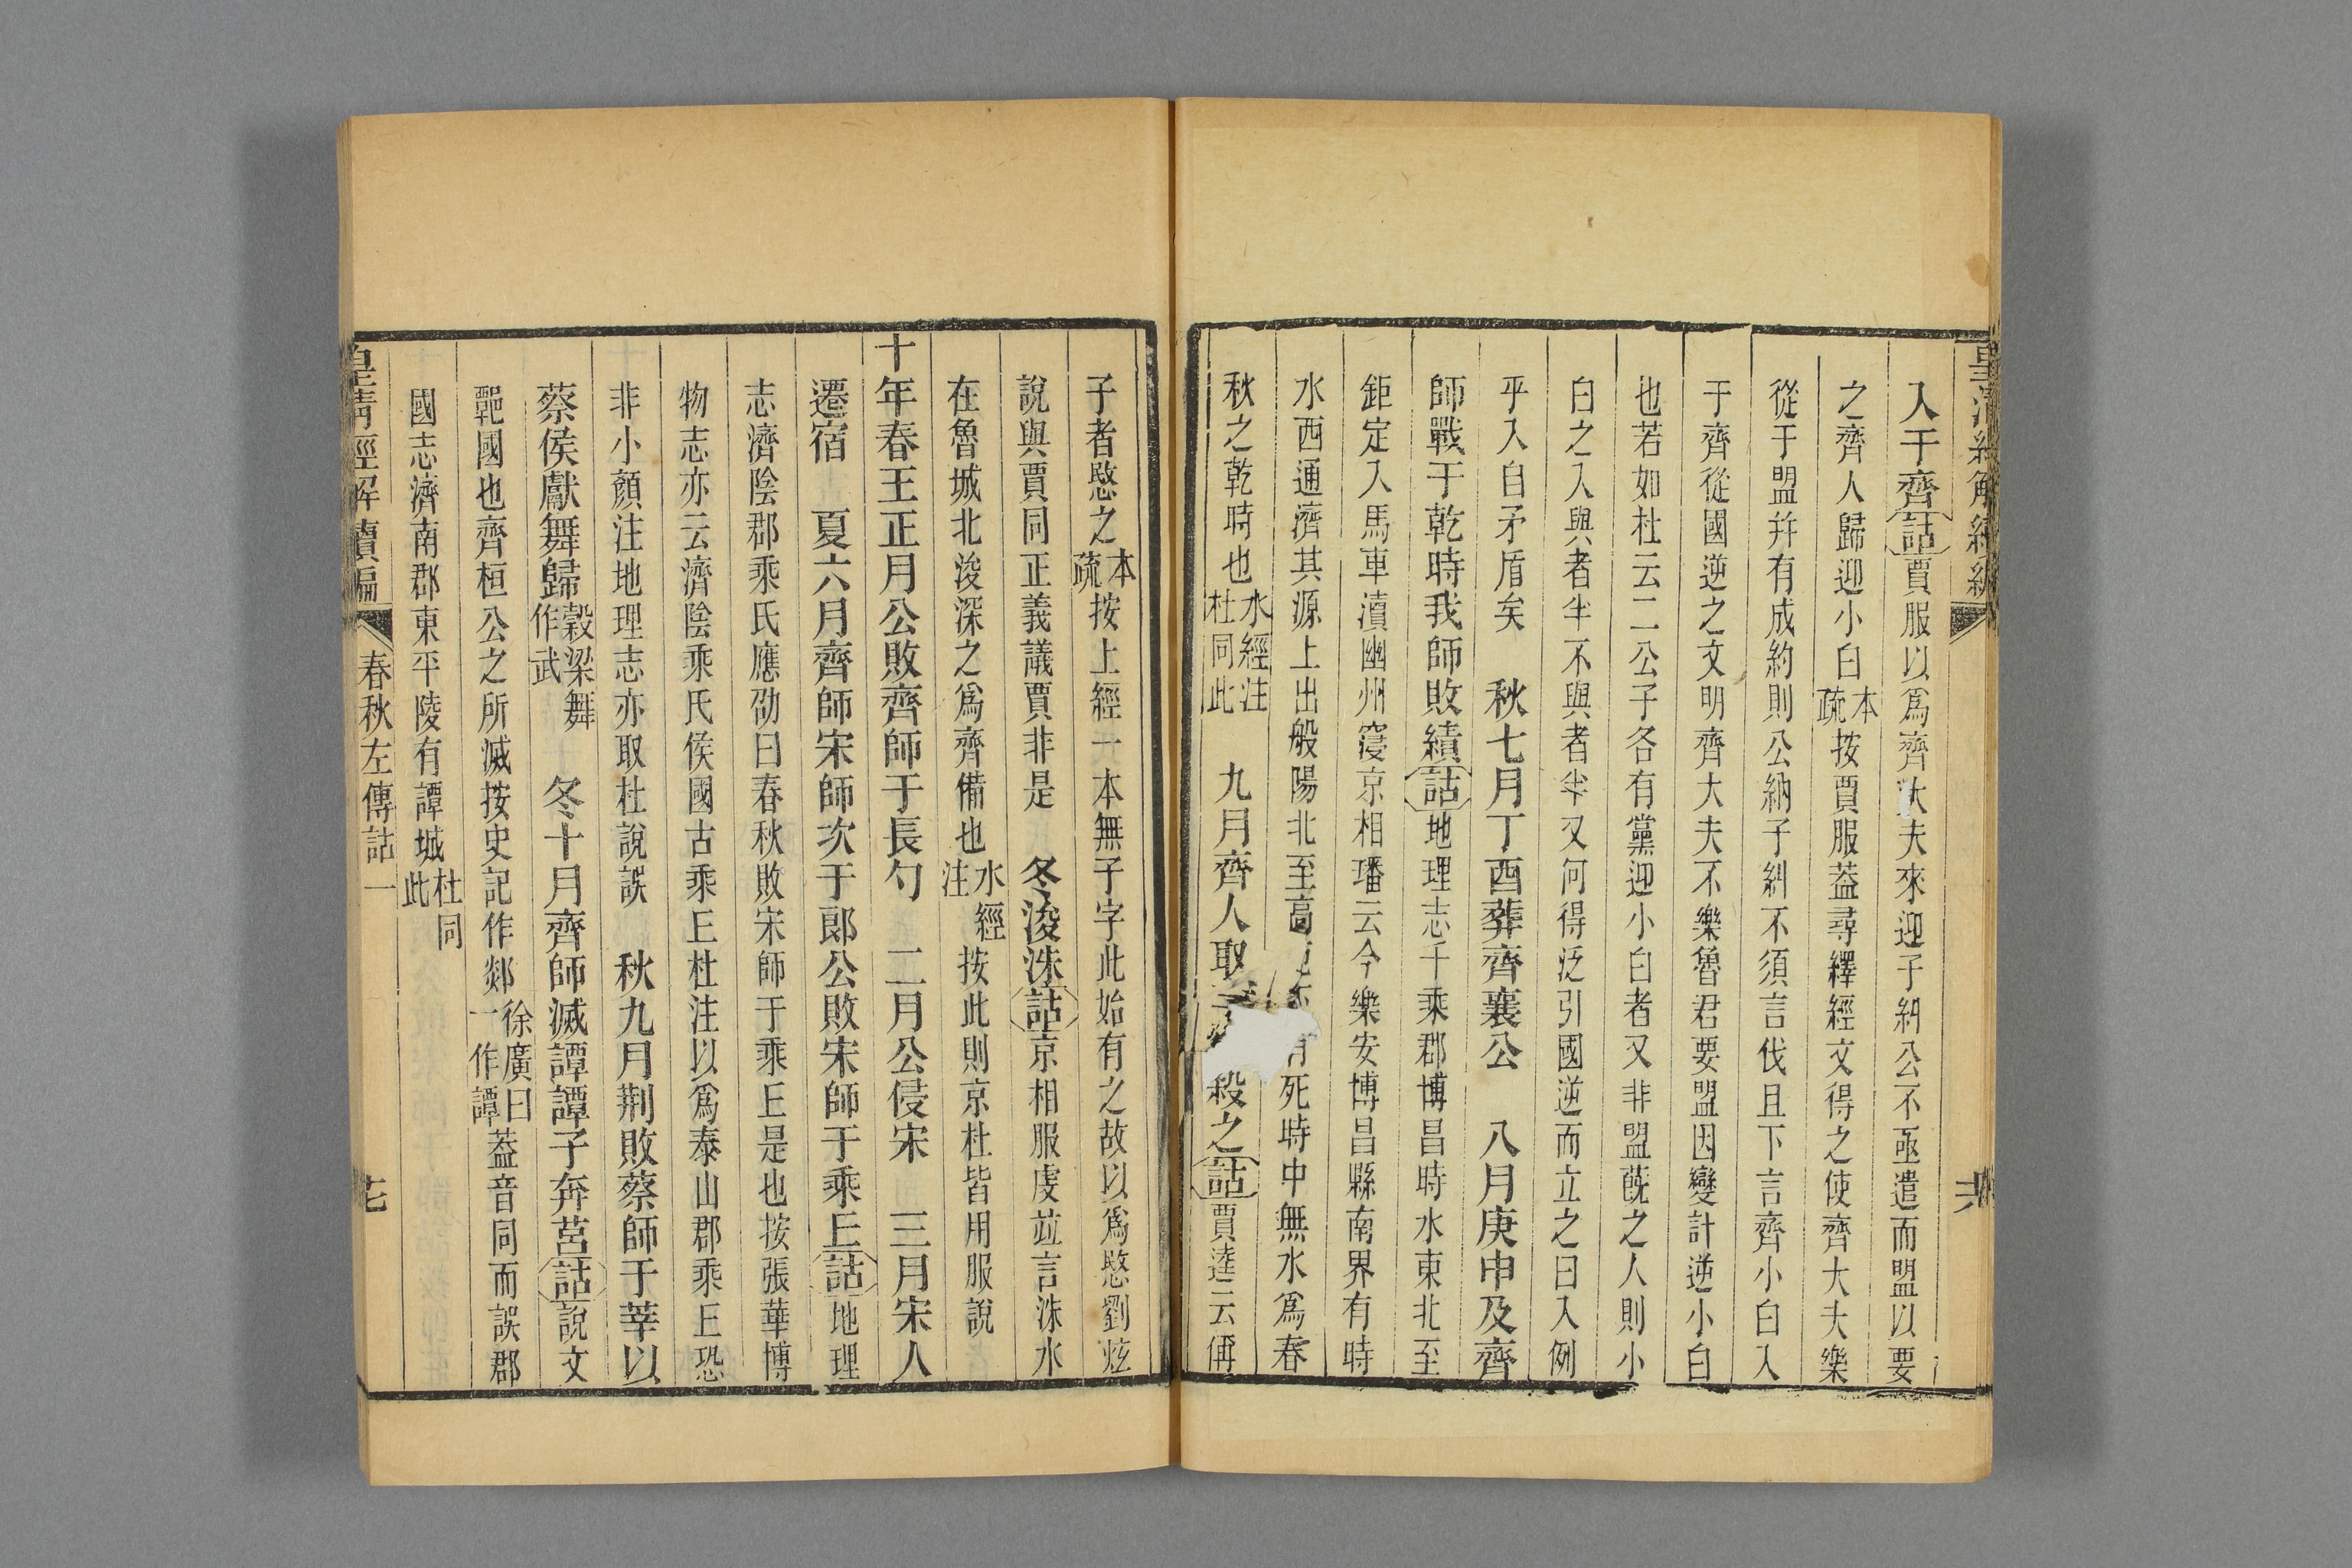 入于齊詁賈服以爲齊大夫來迎子糾公不亟遣而盟以要
之齊人歸迎小白本疏按賈服葢尋繹經文得之使齊大夫樂
從于盟幷有成約則公納子糾不須言伐且下言齊小白入
于齊從國逆之文明齊大夫不樂魯君要盟因變計逆小白
也若如杜云二公子各有黨迎小白者又非盟蔇之人則小
白之入與者半不與者半又何得泛引國逆而立之曰入例
乎入自矛盾矣 秋七月丁酉葬齊襄公 八月庚申及齊
師戰于乾時我師敗績詁地理志千乘郡博昌時水東北至
鉅定入馬車瀆幽州寖京相璠云今樂安博昌縣南界有時
水西通濟其源上出般陽北至高 有死時中無水爲春
秋之乾時也水經注杜同此 九月齊人取子 殺之詁賈逵云偁
子者愍之本疏按上經一本無子字此始有之故以爲愍劉炫
說與賈同正義議賈非是 冬浚洙詁京相服虔竝言洙水
在魯城北浚深之爲齊備也水經注按此則京杜皆用服說
十年春王正月公敗齊師于長勺 二月公侵宋 三月宋人
遷宿 夏六月齊師宋師次于郎公敗宋師于乘丘詁地理
志濟陰郡乘氏應劭曰春秋敗宋師于乘丘是也按張華博
物志亦云濟陰乘氏侯國古乘丘杜注以爲泰山郡乘丘恐
非小顏注地理志亦取杜說誤 秋九月荆敗蔡師于莘以
蔡侯獻舞歸穀梁舞作武 冬十月齊師滅譚譚子奔莒詁說文
𨝸國也齊桓公之所滅按史記作郯徐廣曰一作譚葢音同而誤郡
國志濟南郡東平陵有譚城杜同此
皇清經解續編 春秋左傳詁一